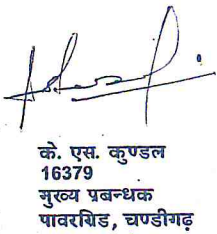 के. एस. कुण्डल
16379
मुख्य प्रबन्धक
पावरग्रिड, चण्डीगढ़